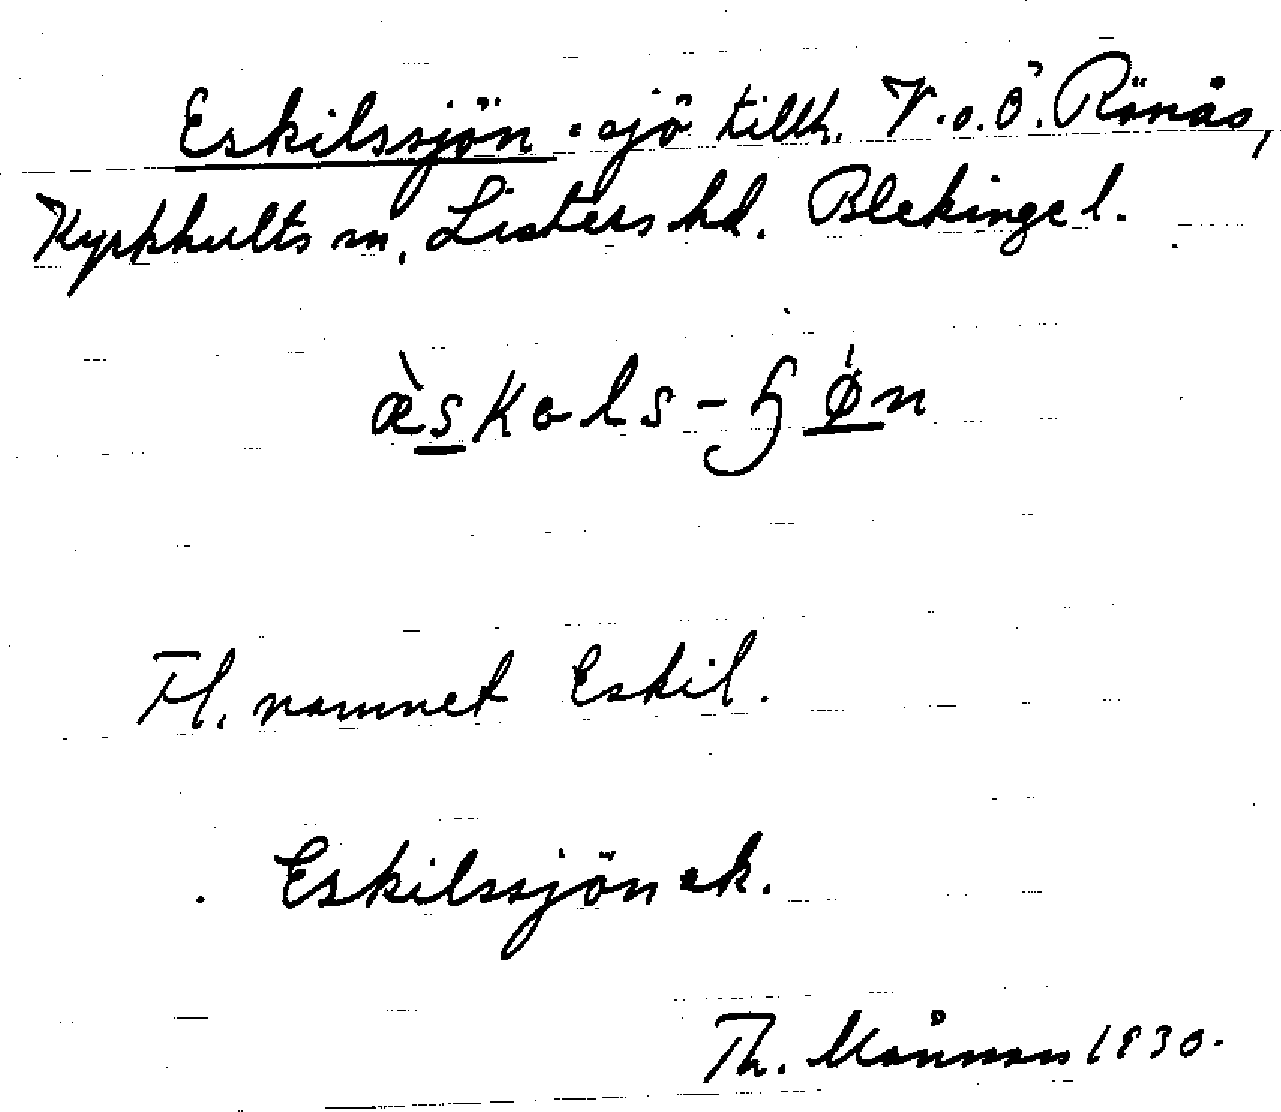 Eskilssjön . sjö tillh. V. o. Ö. Rönås,
Kyrkhults sn, Listers hd. Blekinge l.
æ̀skols-ɧǿn
Fl. namnet Eskil.
Eskilssjön ek.
Th. Månsson 1930.